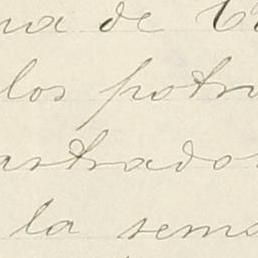 na de
los potr
astrado
la sema